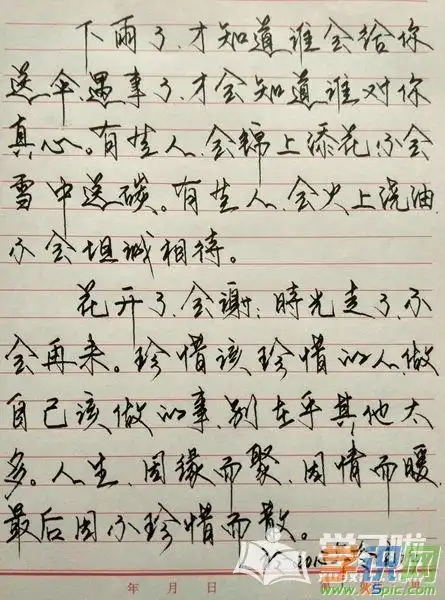 下雨了,才知道谁会给你
送伞,遇事了,才会知道谁对你
真心。有些人,会锦上添花,不会
雪中送碳。有些人,会火上浇油
不会坦诚相待。
花开了,会谢;時光走了,不
会再来。珍惜该珍惜的人,做
自己该做的事,别在乎其他太
多。人生,因缘而聚,因情而暖,
最后因不珍惜而散。
学识网
www.xs5pic.com
年 月 日